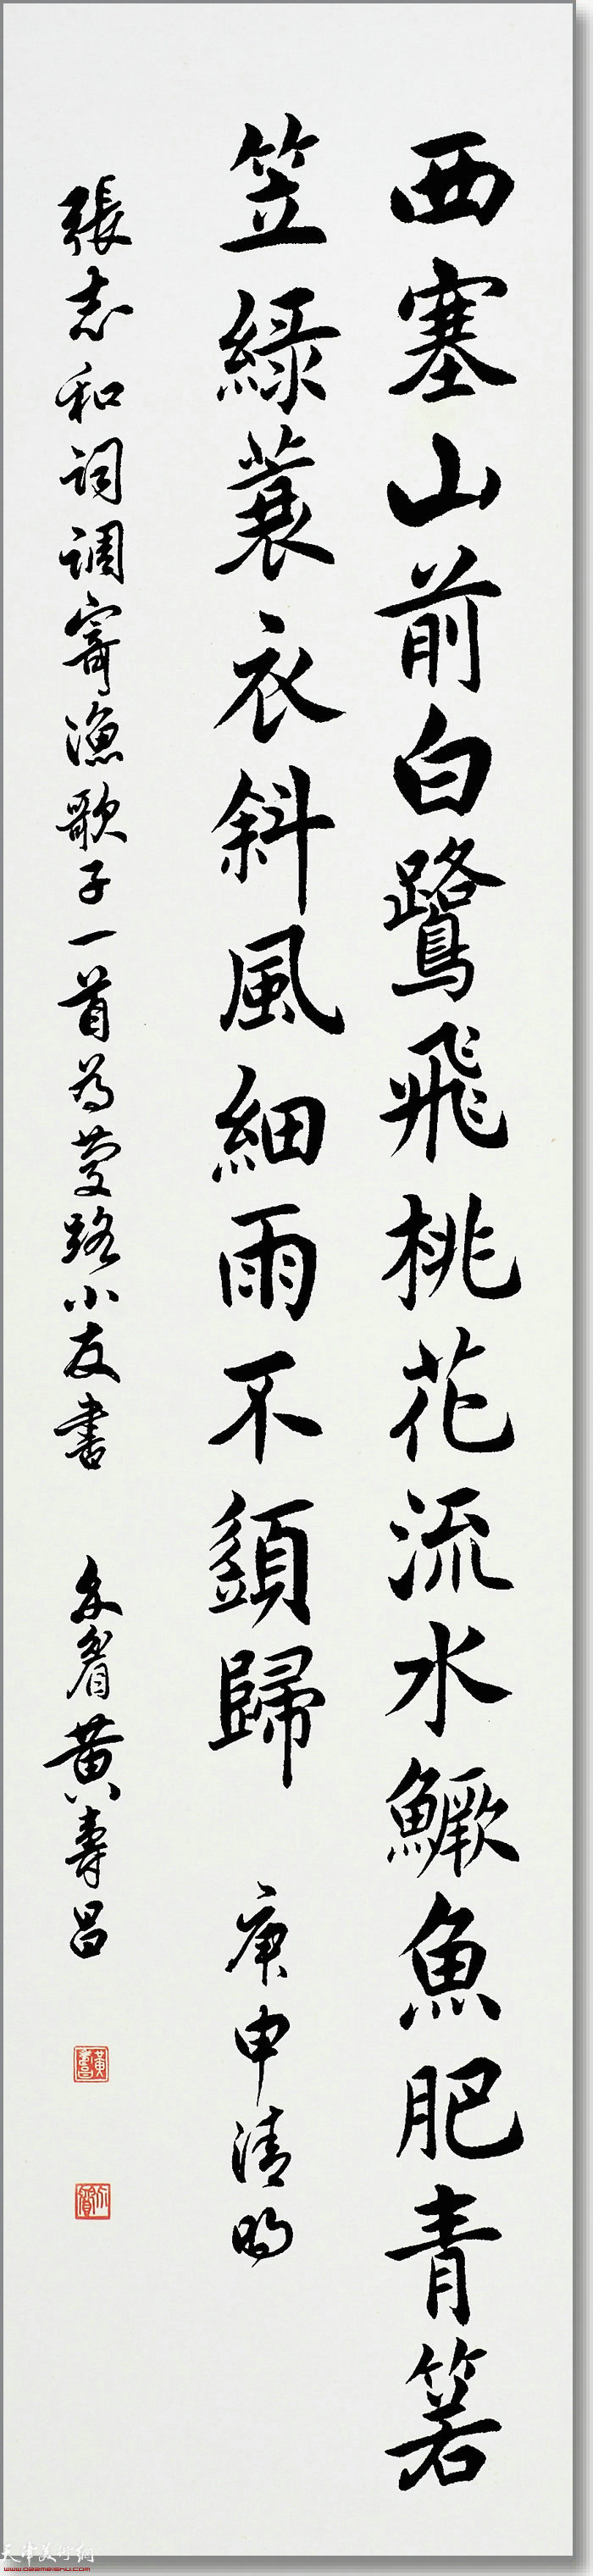 西塞山前白鷺飛桃花流水鱖魚肥青箬
笠緑蓑衣斜風細雨不須歸 庚申清明
張志和詞調寄漁歌子一首為蔓路小友書 黄壽昌
黃壽昌
天津美術網
www.022meishu.com